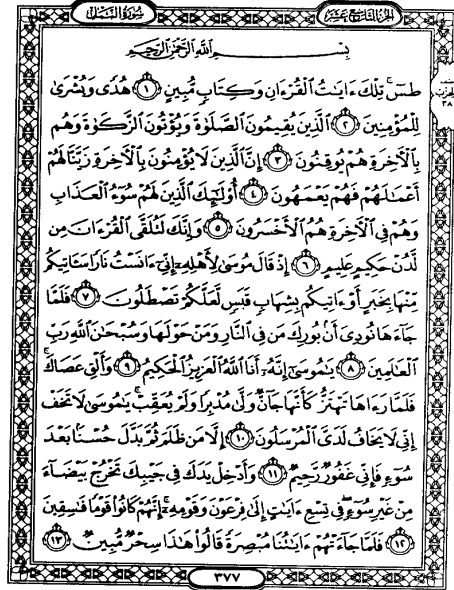 الجزء التاسع عشر
سورة النمل
بِسْمِ اللَّهِ الرَّحْمَٰنِ الرَّحِيمِ
طسٓ ۚ تِلْكَ ءَايَٰتُ الْقُرْءَانِ وَكِتَابٍ مُّبِينٍ ١ هُدًى وَبُشْرَىٰ
لِلْمُؤْمِنِينَ ٢ الَّذِينَ يُقِيمُونَ الصَّلَوٰةَ وَيُؤْتُونَ الزَّكَوٰةَ وَهُم
بِالْءَاخِرَةِ هُمْ يُوقِنُونَ ٣ إِنَّ الَّذِينَ لَا يُؤْمِنُونَ بِالْءَاخِرَةِ زَيَّنَّا لَهُمْ
أَعْمَٰلَهُمْ فَهُمْ يَعْمَهُونَ ٤ أُوْلَٰٓئِكَ الَّذِينَ لَهُمْ سُوٓءُ الْعَذَابِ
وَهُمْ فِي الْءَاخِرَةِ هُمُ الْأَخْسَرُونَ ٥ وَإِنَّكَ لَتُلَقَّى الْقُرْءَانَ مِن
لَّدُنْ حَكِيمٍ عَلِيمٍ ٦ إِذْ قَالَ مُوسَىٰ لِأَهْلِهِۦٓ إِنِّيٓ ءَانَسْتُ نَارًا سَـَٔاتِيكُم
مِّنْهَا بِخَبَرٍ أَوْ ءَاتِيكُم بِشِهَابٍ قَبَسٍ لَّعَلَّكُمْ تَصْطَلُونَ ٧ فَلَمَّا
جَآءَهَا نُودِيَ أَنۢ بُورِكَ مَن فِي النَّارِ وَمَنْ حَوْلَهَا وَسُبْحَٰنَ اللَّهِ رَبِّ
الْعَٰلَمِينَ ٨ يَٰمُوسَىٰٓ إِنَّهُۥٓ أَنَا اللَّهُ الْعَزِيزُ الْحَكِيمُ ٩ وَأَلْقِ عَصَاكَ ۚ
فَلَمَّا رَءَاهَا تَهْتَزُّ كَأَنَّهَا جَآنٌّ وَلَّىٰ مُدْبِرًا وَلَمْ يُعَقِّبْ ۚ يَٰمُوسَىٰ لَا تَخَفْ
إِنِّي لَا يَخَافُ لَدَيَّ الْمُرْسَلُونَ ١٠ إِلَّا مَن ظَلَمَ ثُمَّ بَدَّلَ حُسْنًۢا بَعْدَ
سُوٓءٍ فَإِنِّي غَفُورٌ رَّحِيمٌ ١١ وَأَدْخِلْ يَدَكَ فِي جَيْبِكَ تَخْرُجْ بَيْضَآءَ
مِنْ غَيْرِ سُوٓءٍ ۖ فِي تِسْعِ ءَايَٰتٍ إِلَىٰ فِرْعَوْنَ وَقَوْمِهِۦٓ ۚ إِنَّهُمْ كَانُوا۟ قَوْمًا فَٰسِقِينَ
١٢ فَلَمَّا جَآءَتْهُمْ ءَايَٰتُنَا مُبْصِرَةً قَالُوا۟ هَٰذَا سِحْرٌ مُّبِينٌ ١٣
٣٧٧